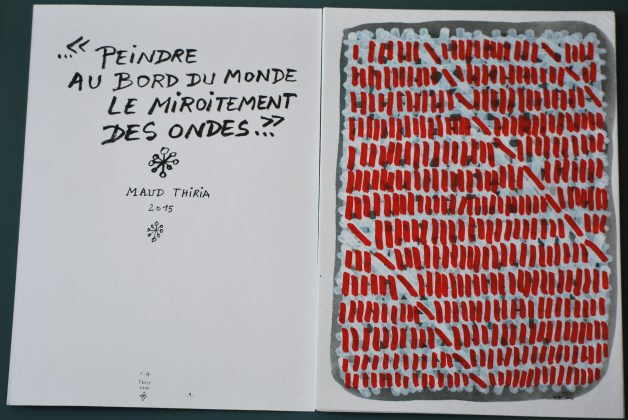 ..." PEINDRE
AU BORD DU MONDE
LE MIROITEMENT
DES ONDES..."
MAUD THIRIA
2015